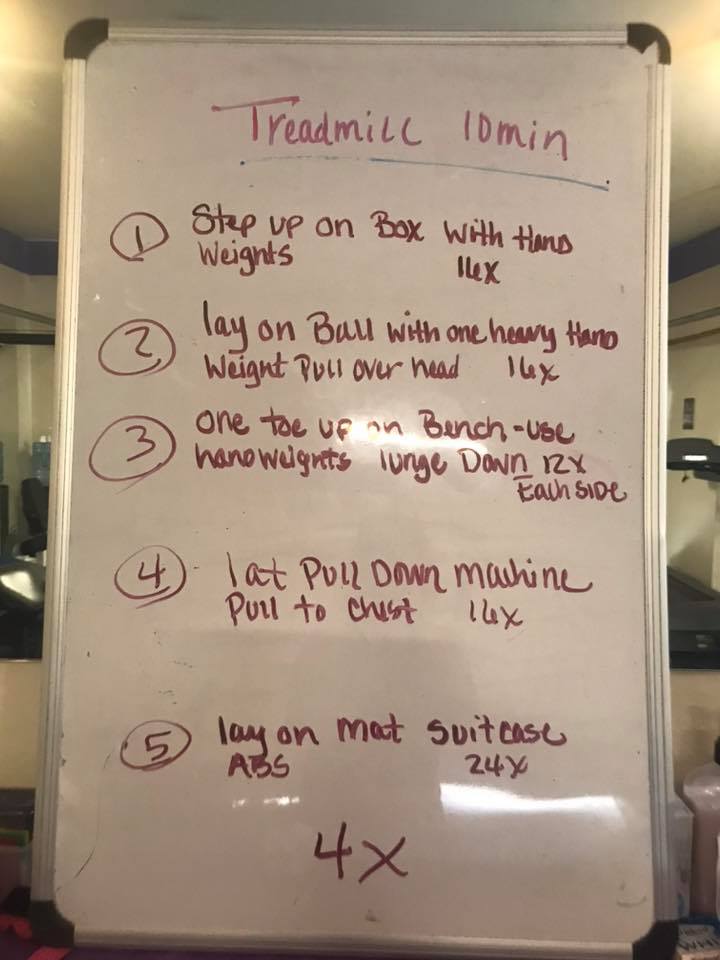 Treadmill 10min
1 Step up on Box with Hand
Weights 16x
2 lay on Ball with one heavy Hand
Weight Pull over head 16x
3 one toe up on Bench - use
handweights lunge Down 12x
Each SIDE
4 lat Pull Down machine
Pull to chest 16x
5 lay on mat suitcase
ABS 24x
4x